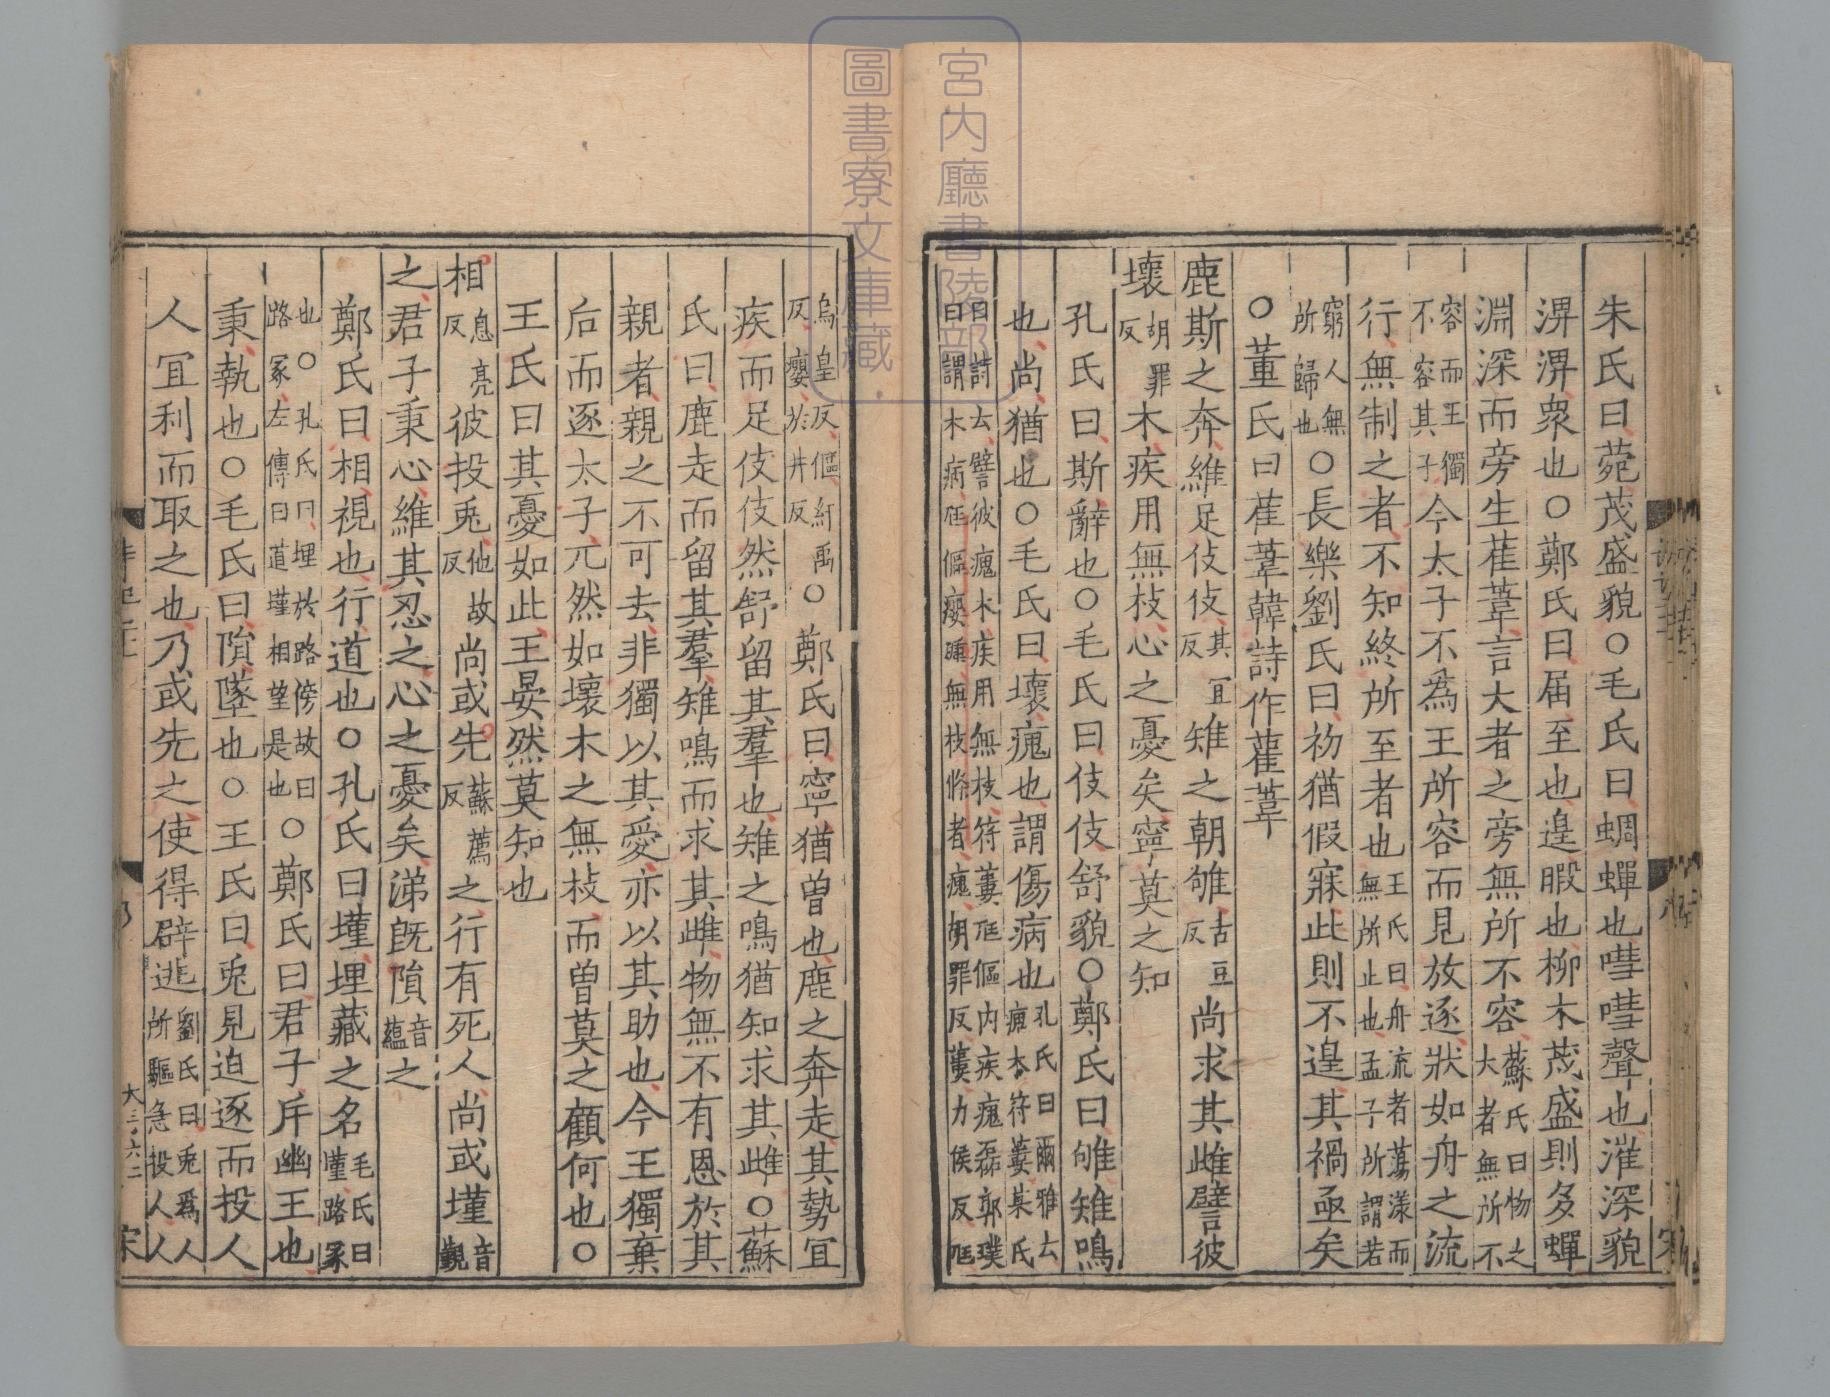 朱氏曰菀茂盛貌○毛氏曰蜩蟬也嘒嘒聲也漼深貌
淠淠衆也○鄭氏曰届至也遑暇也柳木茂盛則多蟬
淵深而旁生萑葦言大者之旁無所不容蘇氏曰物之大者無所不
容而王獨不容其子今太子不為王所容而見放逐狀如舟之流
行無制之者不知終所至者也王氏曰舟流者蕩漾而無所止也孟子所謂若
窮人無所歸也○長樂劉氏曰礿猶假寐此則不遑其禍亟矣
○董氏曰萑葦韓詩作雚葦
鹿斯之奔維足伎伎其宜反雉之朝雊古豆反尚求其雌譬彼
壞胡罪反木疾用無枝心之憂矣寧莫之知
孔氏曰斯辭也○毛氏曰伎伎舒貌○鄭氏曰雊雉鳴
也尚猶也○毛氏曰壞瘣也謂傷病也孔氏曰爾雅云瘣木符蔞某氏
曰詩云譬彼瘣木疾用無枝符蔞尫傴内疾瘣磊郭璞曰謂木病尫傴癭踵無枝條者瘣胡罪反蔞力侯反尫
烏皇反傴紆禹反癭於井反○鄭氏曰寧猶曽也鹿之奔走其勢宜
疾而足伎伎然舒留其羣也雉之鳴猶知求其雌○蘇
氏曰鹿走而留其羣雉鳴而求其雌物無不有恩於其
親者親之不可去非獨以其愛亦以其助也今王獨棄
后而逐太子兀然如壞木之無枝而曽莫之顧何也○
王氏曰其憂如此王晏然莫知也
相息亮反彼投兎他故反尚或先蘇薦反之行有死人尚或墐音覲
之君子秉心維其忍之心之憂矣涕旣隕音蘊之
鄭氏曰相視也行道也○孔氏曰墐埋藏之名毛氏曰墐路冢
也○孔氏曰埋於路傍故曰路冢左傳曰道墐相望是也○鄭氏曰君子斥幽王也
秉執也○毛氏曰隕墜也○王氏曰兎見迫逐而投人
人宜利而取之也乃或先之使得辟逃劉氏曰兎爲人所驅急投人人
大三六二
宋
宮内廳書陵部
圖書寮文庫藏